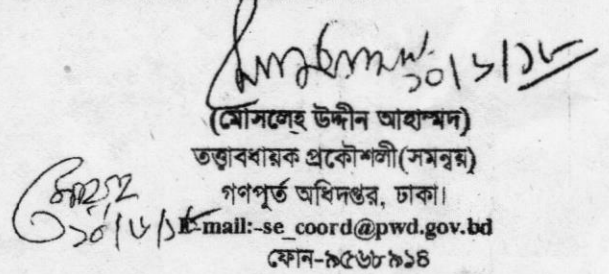 (মোসলেহ্ উদ্দীন আহাম্মদ)
তত্ত্বাবধায়ক প্রকৌশলী(সমন্বয়)
গণপূর্ত অধিদপ্তর, ঢাকা।
E-mail:-se_coord@pwd.gov.bd
ফোন-৯৫৬৮৯১৪